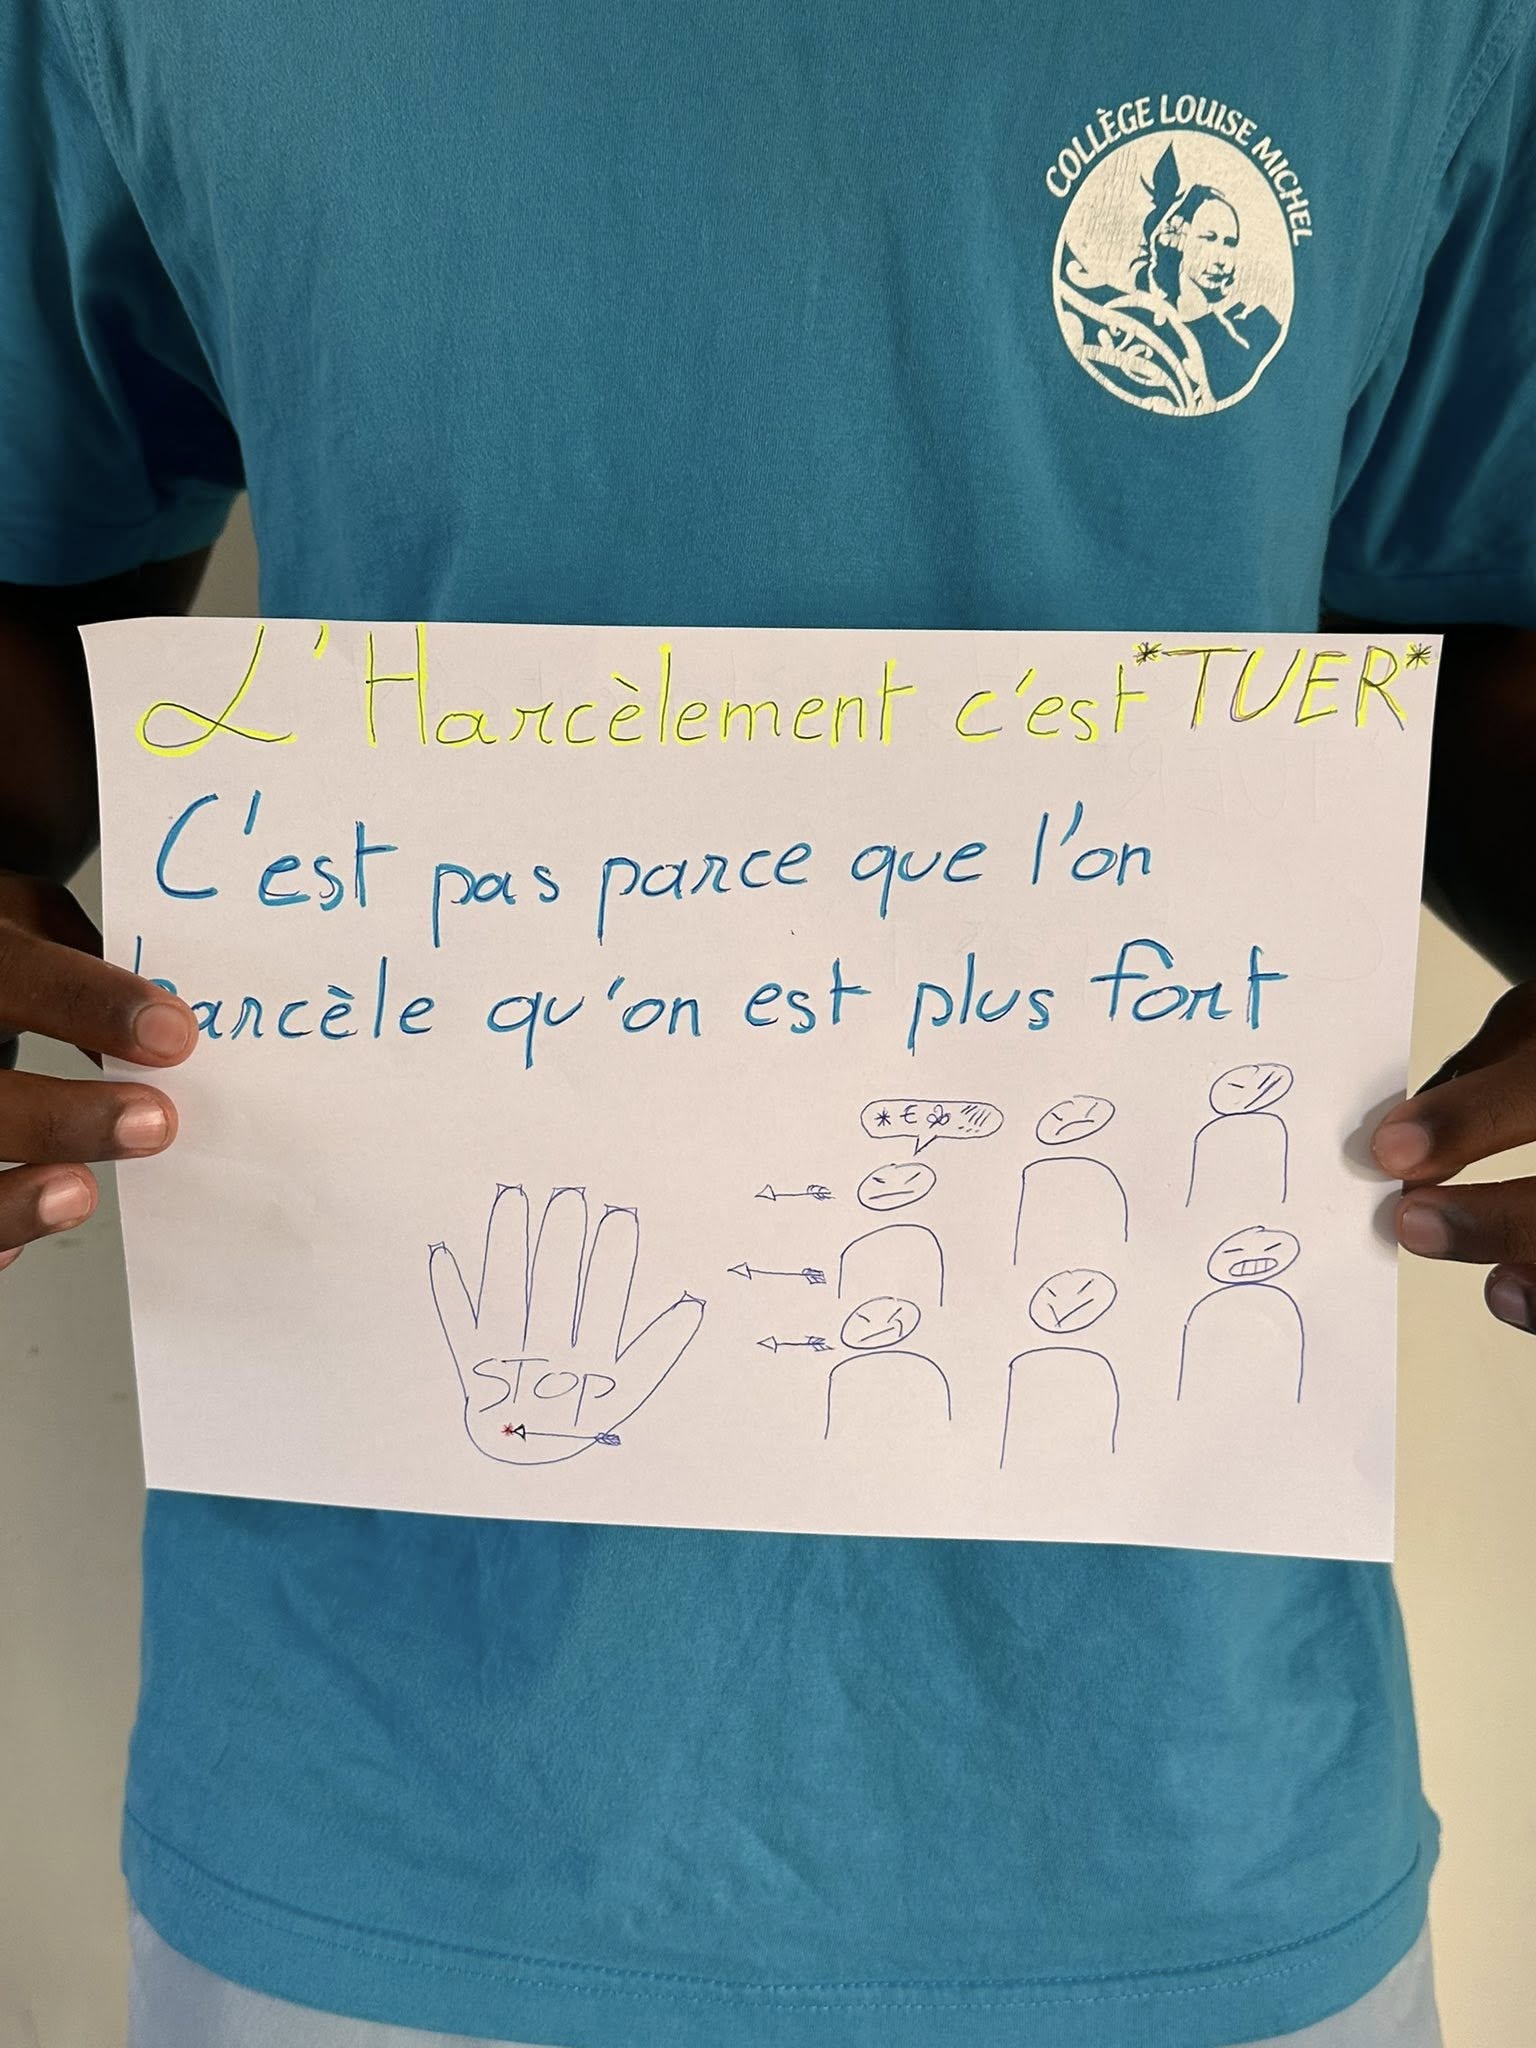 COLLÈGE LOUISE MICHEL
L'Harcèlement c'est *TUER*
C'est pas parce que l'on
harcèle qu'on est plus fort
* € % !!!!
STOP